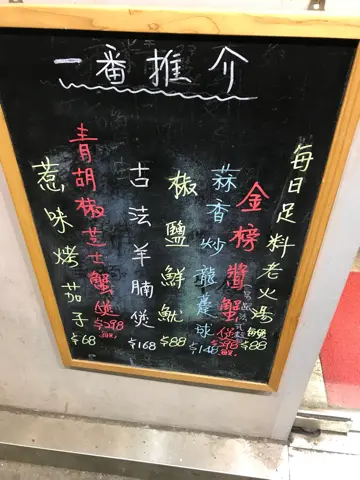 一番推介
每日足料老火湯 $88
金榜醬蟹煲 $298
蒜香炒龍躉球 $148
椒鹽鮮魷 $88
古法羊腩煲 $168
青胡椒芝士蟹煲 $298
惹味烤茄子 $68